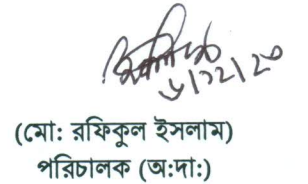 ৮/১২/২০
(মো: রফিকুল ইসলাম)
পরিচালক (অ:দা:)